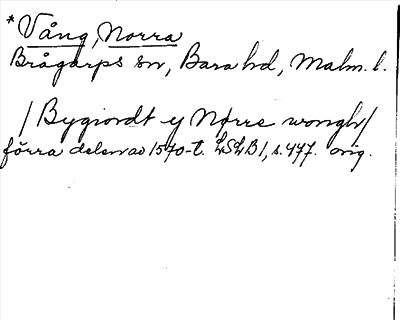 *Vång, Norra
Brågarps sn, Bara hd, Malm. l.
/Bygiordt y Nørre wongh/
förra delen av 1570-t. LSLB1, s. 477. orig.